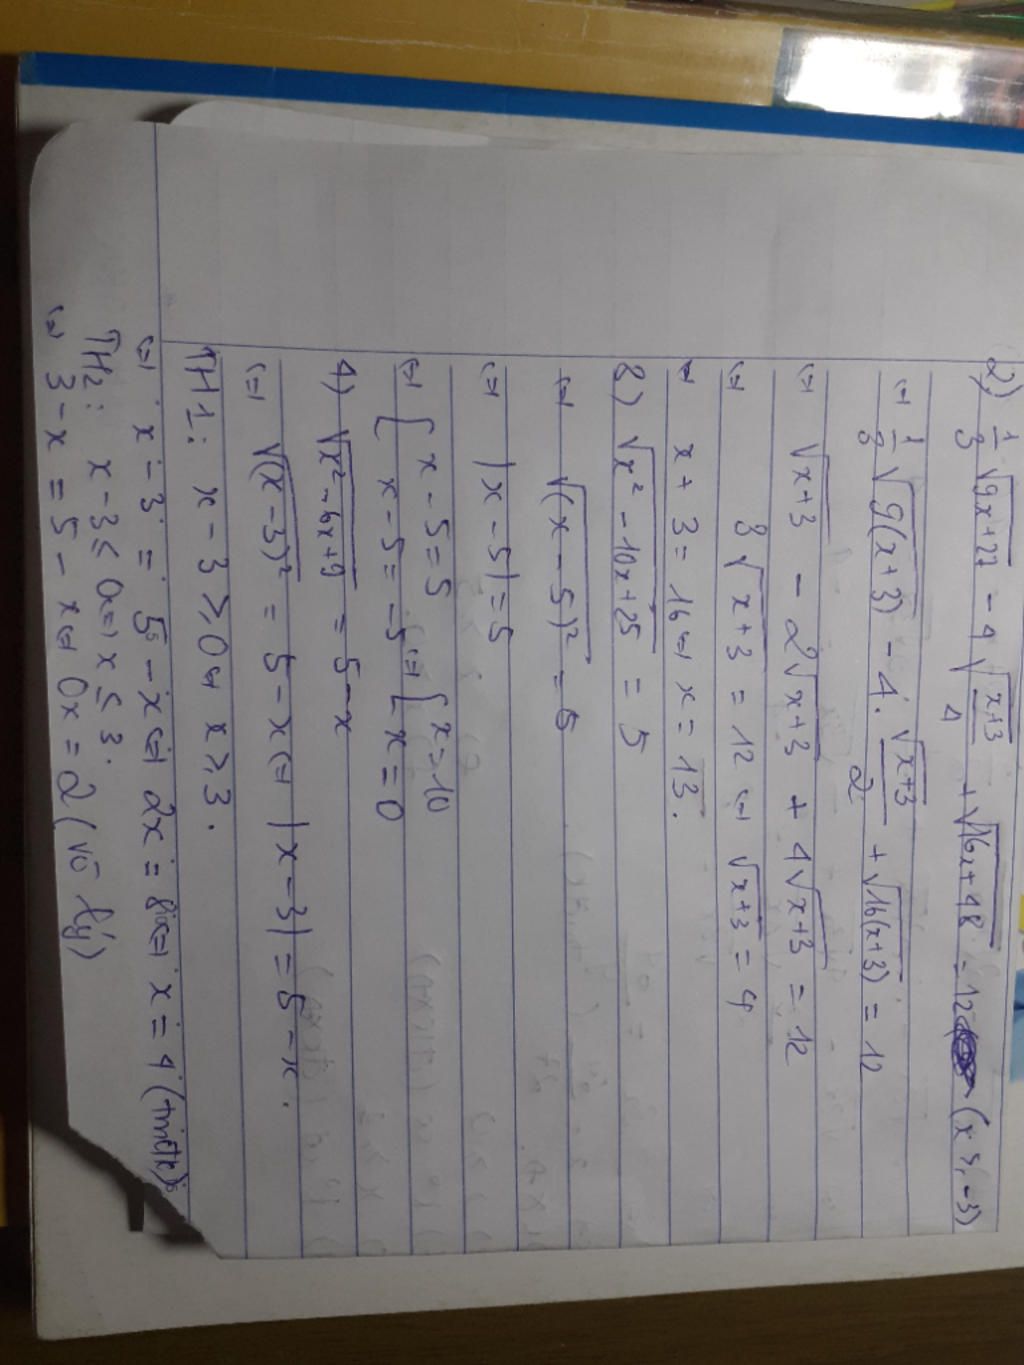 2) 1/3 √(9x+27) - 4 √((x+3)/4) + √(16x+48) = 12 (x ≥ -3)
(=) 1/3 √(9(x+3)) - 4. √(x+3)/2 + √(16(x+3)) = 12
(=) √(x+3) - 2√(x+3) + 4√(x+3) = 12
(=) 3√(x+3) = 12 (=) √(x+3) = 4
(=) x + 3 = 16 (=) x = 13.
3) √(x² - 10x + 25) = 5
(=) √((x - 5)²) = 5
(=) |x - 5| = 5
(=) [ x - 5 = 5 (=) [ x = 10
x - 5 = -5 x = 0
4) √(x² - 6x + 9) = 5 - x
(=) √((x - 3)²) = 5 - x (=) |x - 3| = 5 - x.
TH1: x - 3 ≥ 0 (=) x ≥ 3.
(=) x - 3 = 5 - x (=) 2x = 8 (=) x = 4 (tmđk)
TH2: x - 3 ≤ 0 (=) x ≤ 3.
(=) 3 - x = 5 - x (=) 0x = 2 (vô lý)